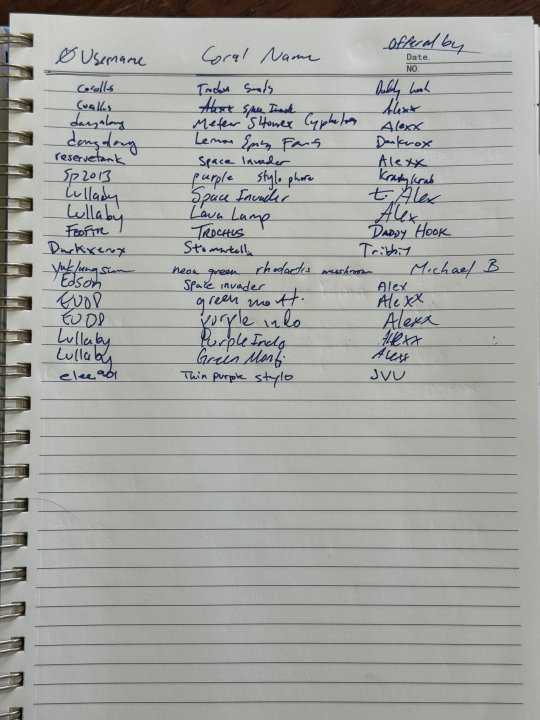 Username Coral Name Offered by
Date.
NO.
corallis Trochus Snails Daddy Hook
Corallis Space Invader Alexx
dongdong Meteor Shower Cyphastrea Alexx
dongdong Lemon Fang Darkxerox
reservetank Space invader Alexx
Sp2013 purple stylophora Krazykrab
Lullaby Space Invader Alex
Lullaby Lava Lamp Alex
FBOFTR TROCHUS DADDY HOOK
Darkxerox Stomatella Tribbit
neon green rhodactis mushroom Michael B
Edson Space invader Alex
EUDP green monti. Alexx
EUDP purple indo Alexx
Lullaby Purple Indo Alexx
Lullaby Green Monti Alexx
Thin purple stylo JVU